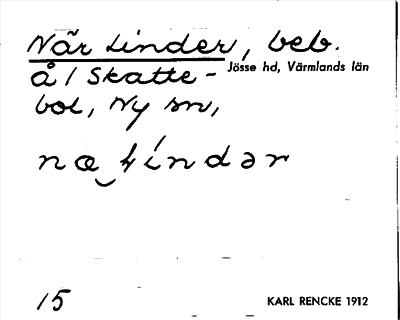 När Linder, beb.
å 1 Skatte-
Jösse hd, Värmlands län
bol, Ny sn,
15
KARL RENCKE 1912